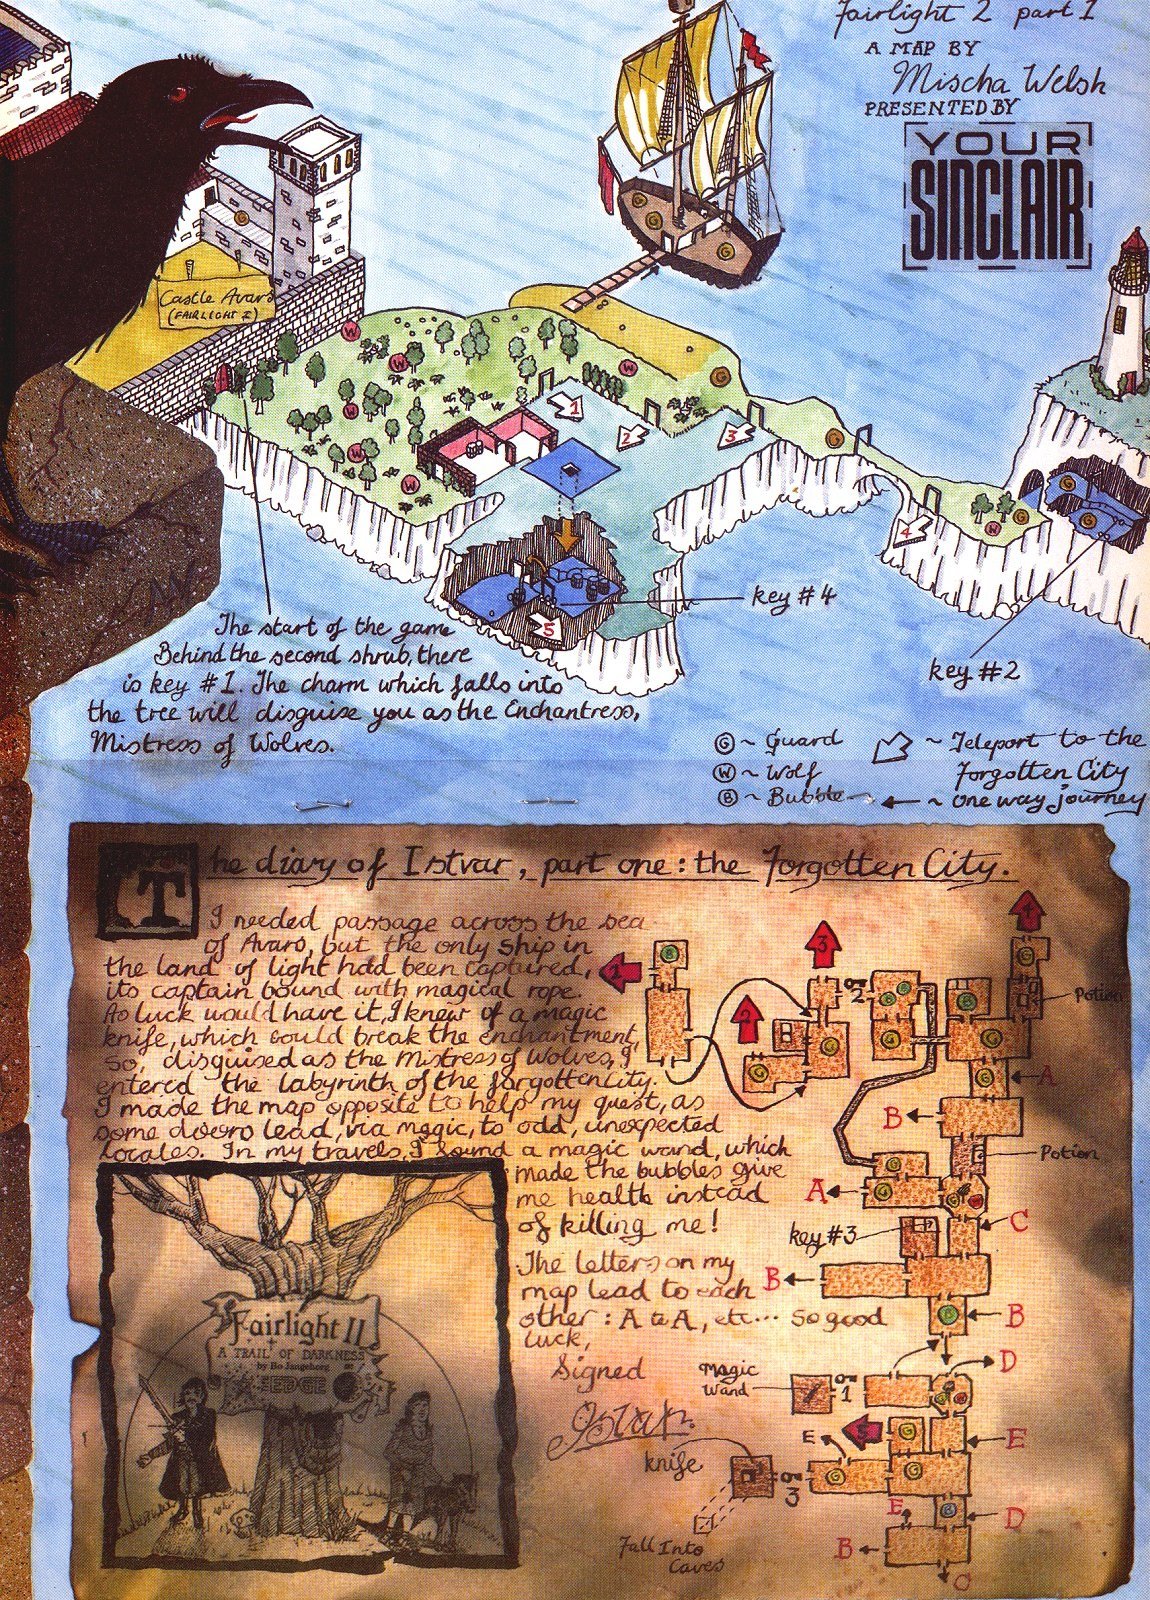 Fairlight 2 part 1
A MAP BY
Mischa Welsh
PRESENTED BY
YOUR
SINCLAIR
Castle Avars
(FAIRLIGHT I)
G
W
W
W
W
W
W
G
G
G
G
G
G
W
G
G
G
1
2
3
4
5
key #4
key #2
The start of the game
Behind the second shrub, there
is key #1. The charm which falls into
the tree will disguise you as the Enchantress,
Mistress of Wolves.
G ~ Guard
W ~ Wolf
B ~ Bubble
~ Teleport to the
Forgotten City
~ one way journey
The diary of Istvar, part one: the Forgotten City.
I needed passage across the sea
of Avars, but the only ship in
the land of light had been captured,
its captain bound with magical rope.
As luck would have it, I knew of a magic
knife, which could break the enchantment,
so, disguised as the Mistress of Wolves, I
entered the labyrinth of the forgotten city.
I made the map opposite to help my quest, as
some doors lead, via magic, to odd, unexpected
locales. In my travels, I found a magic wand, which
made the bubbles give
me health instead
of killing me!
The letters on my
map lead to each
other: A to A, etc... So good
luck,
Signed
Istvar.
Fairlight II
A TRAIL OF DARKNESS
by Bo Jangeborg
THE EDGE
1
2
3
4
5
2
Potion
A
B
Potion
A
C
key #3
B
B
D
Magic
Wand
1
E
E
knife
3
E
D
B
C
Fall Into
Caves